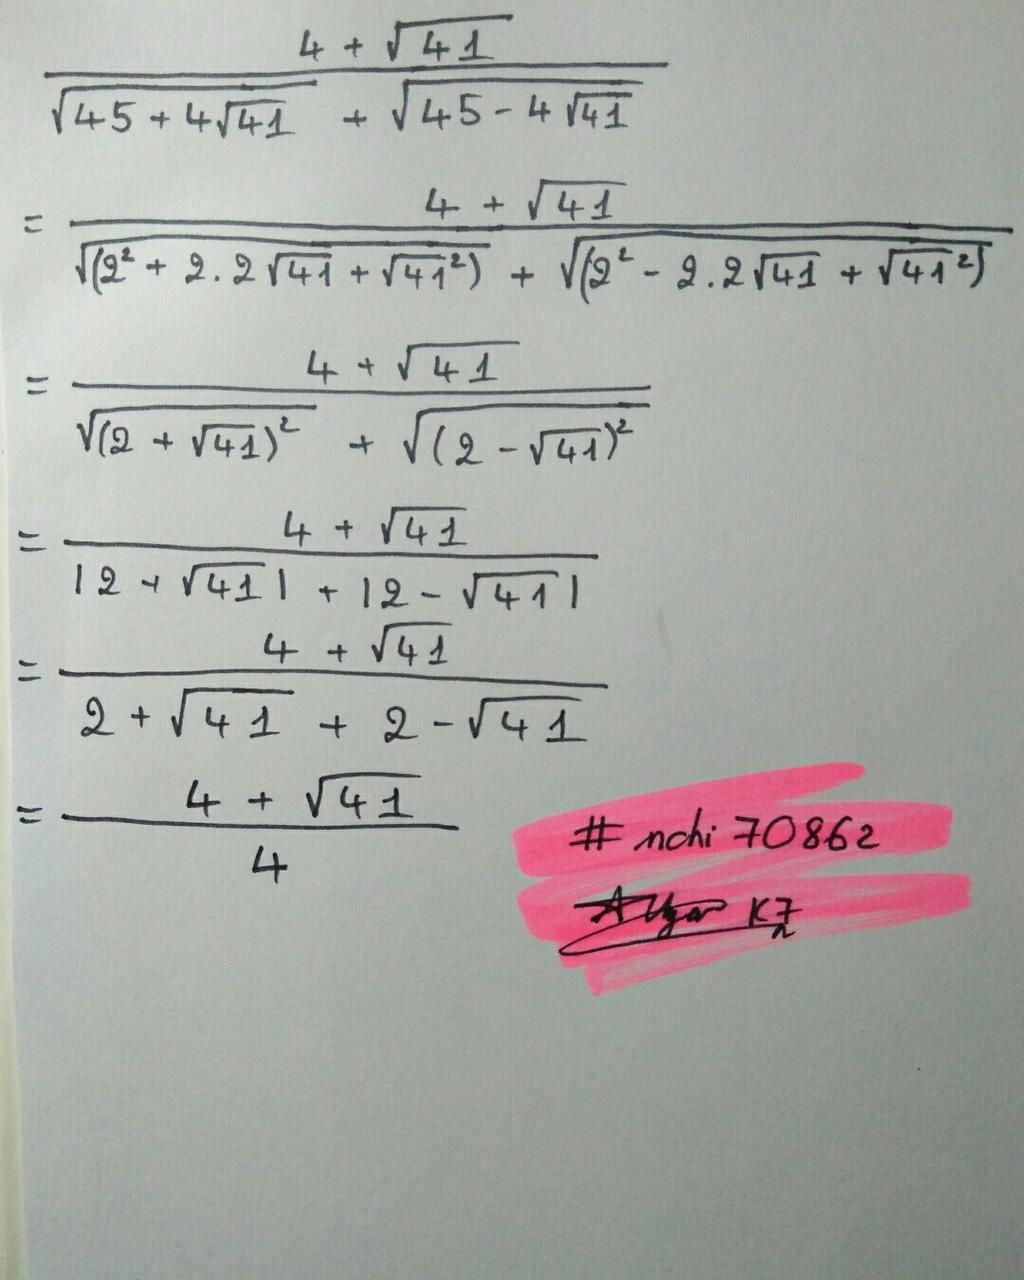 4 + √41
√45 + 4√41 + √45 - 4√41
= 4 + √41
√(2² + 2.2√41 + √41²) + √(2² - 2.2√41 + √41²)
= 4 + √41
√(2 + √41)² + √(2 - √41)²
= 4 + √41
|2 + √41| + |2 - √41|
= 4 + √41
2 + √41 + 2 - √41
= 4 + √41
4
# nchi 70862
K7